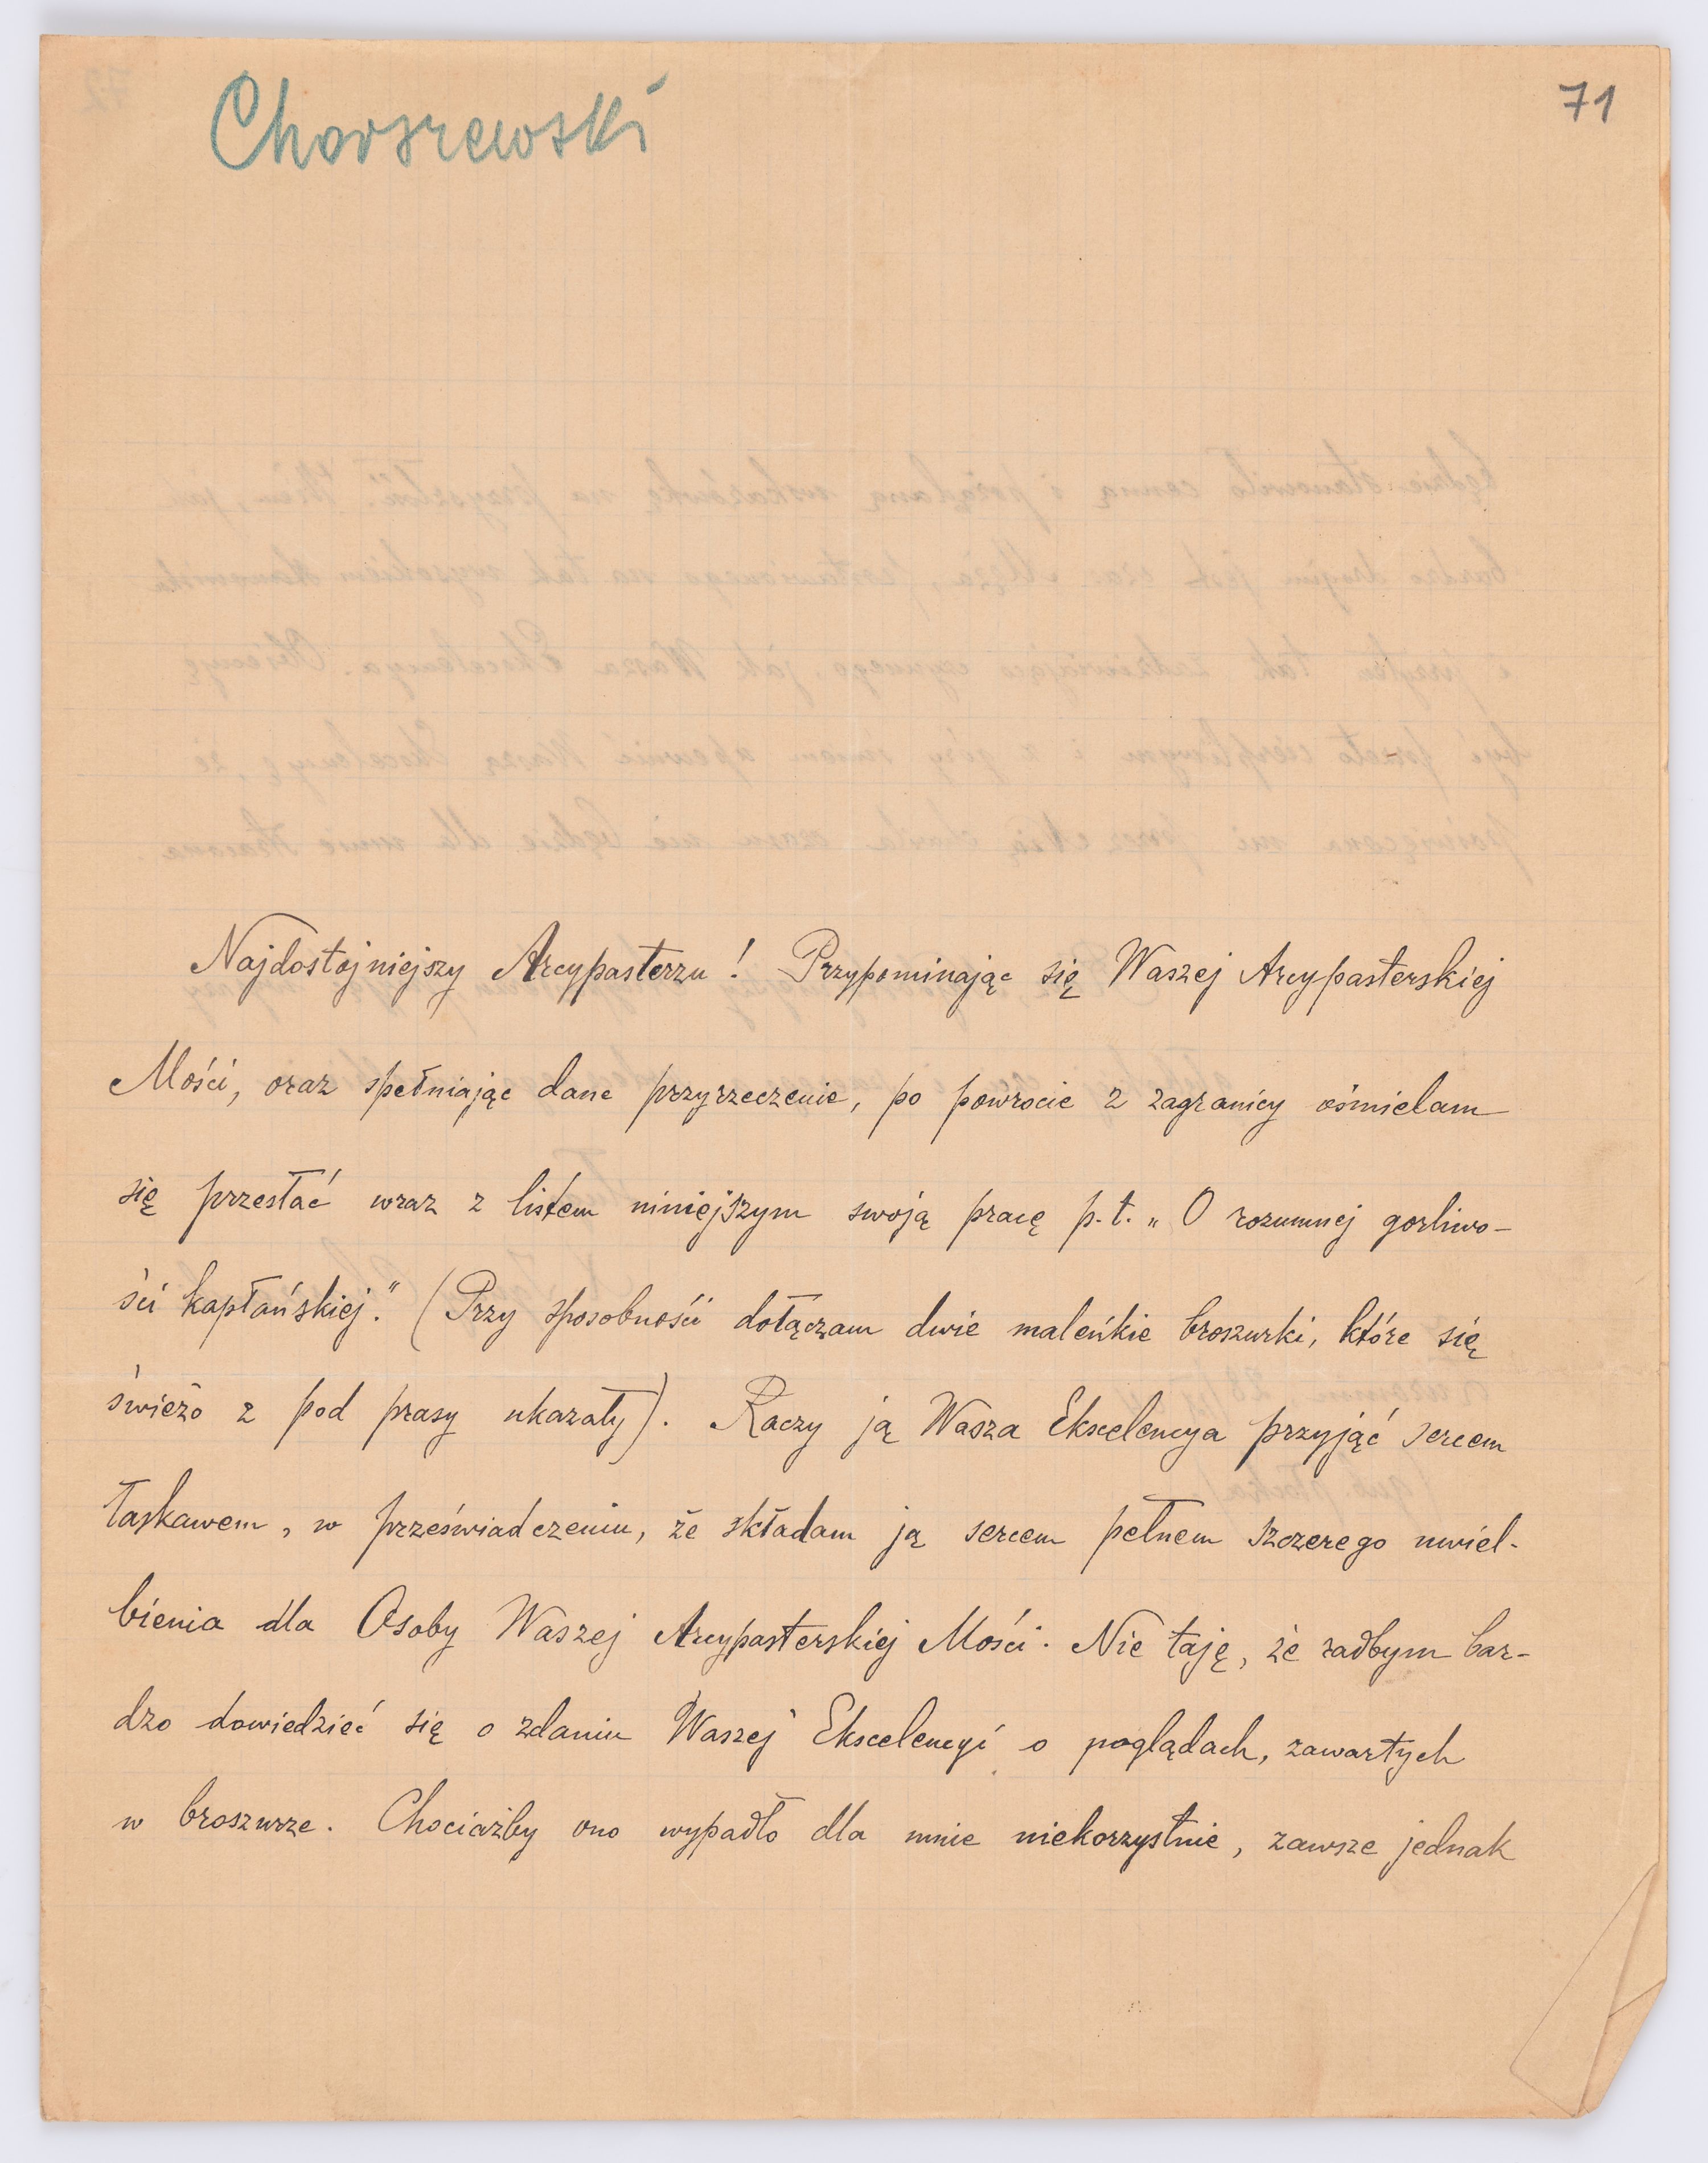 Chorszewski
71
Najdostojniejszy Arcypasterzu! Przypominając się Waszej Arcypasterskiej
Mości, oraz spełniając dane przyrzeczenie, po powrocie z zagranicy ośmielam
się przesłać wraz z listem niniejszym swoją pracę p. t. „O rozumnej gorliwo-
ści kapłańskiej." (Przy sposobności dołączam dwie maleńkie broszurki, które się
świeżo z pod prasy ukazały). Raczy ją Wasza Ekscelencya przyjąć sercem
łaskawem, w przeświadczeniu, że składam ją sercem pełnem szczerego uwiel-
bienia dla Osoby Waszej Arcypasterskiej Mości. Nie taję, że radbym bar-
dzo dowiedzieć się o zdaniu Waszej Ekscelencyi o poglądach, zawartych
w broszurze. Chociażby ono wypadło dla mnie niekorzystnie, zawsze jednak